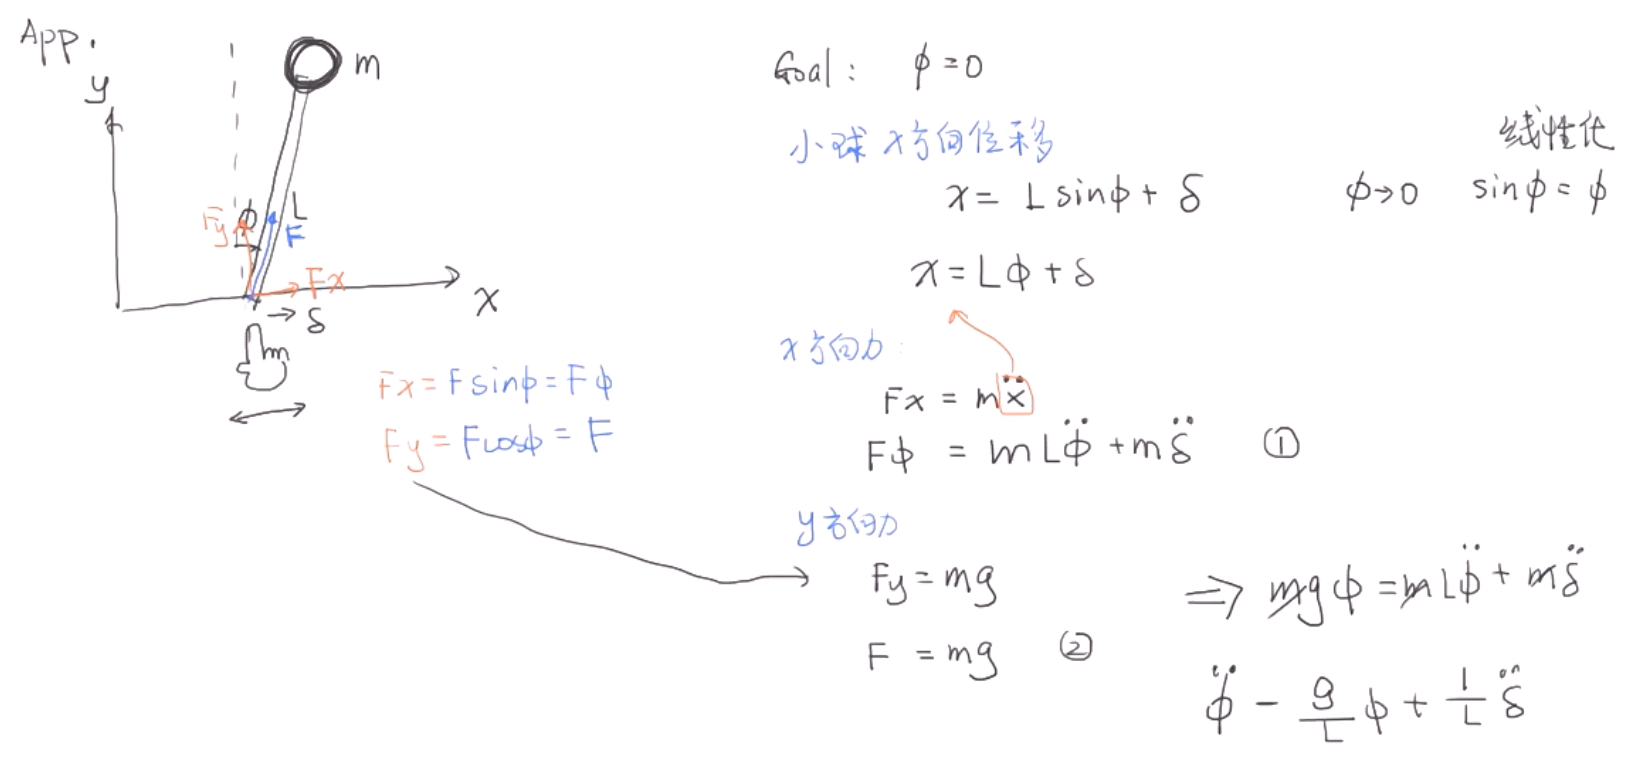 App.
y
m
ϕ
L
Fy
F
Fx
x
→ δ
Fx = F sinϕ = Fϕ
Fy = Fcosϕ = F
Goal : ϕ = 0
小球 x方向位移
x = L sinϕ + δ
线性化
ϕ→0 sinϕ = ϕ
x = Lϕ + δ
x方向力:
Fx = mẍ
Fϕ = mLϕ̈ + mδ̈ ①
y方向力
Fy = mg
F = mg ②
⇒ mgϕ = mLϕ̈ + mδ̈
ϕ̈ - g/L ϕ + 1/L δ̈